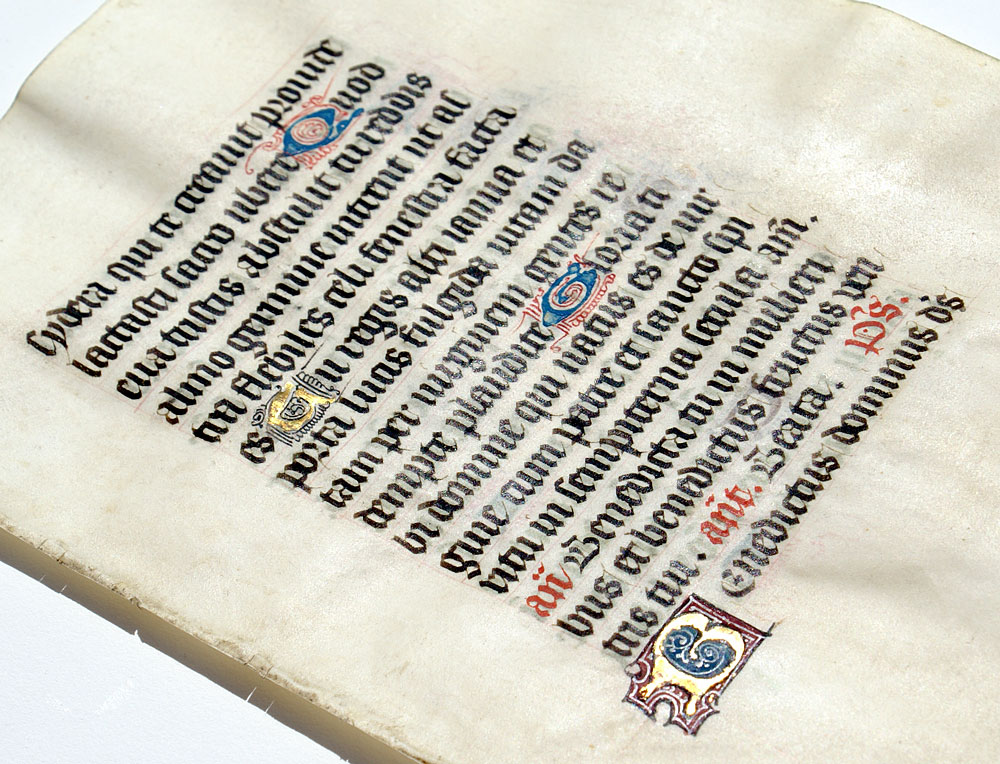 Sydera qui te creauit prouide
lactasti sacro ubere Quod
eua tristis abstulit tu reddis
almo germine intrent ut as
tra flebiles celi fenestra facta
es Tu regis alti ianua et
porta lucis fulgida uitam da
tam per uirginem gentes re
dempte plaudite Gloria ti
bi domine qui natus es de uir
gine cum patre et sancto spi
ritu in sempiterna secula am̄.
an̄ Benedicta tu in mulieri
bus et benedictus fructus uen
tris tui. an̄t. Beata. p̄s.
Benedictus dominus ds̄